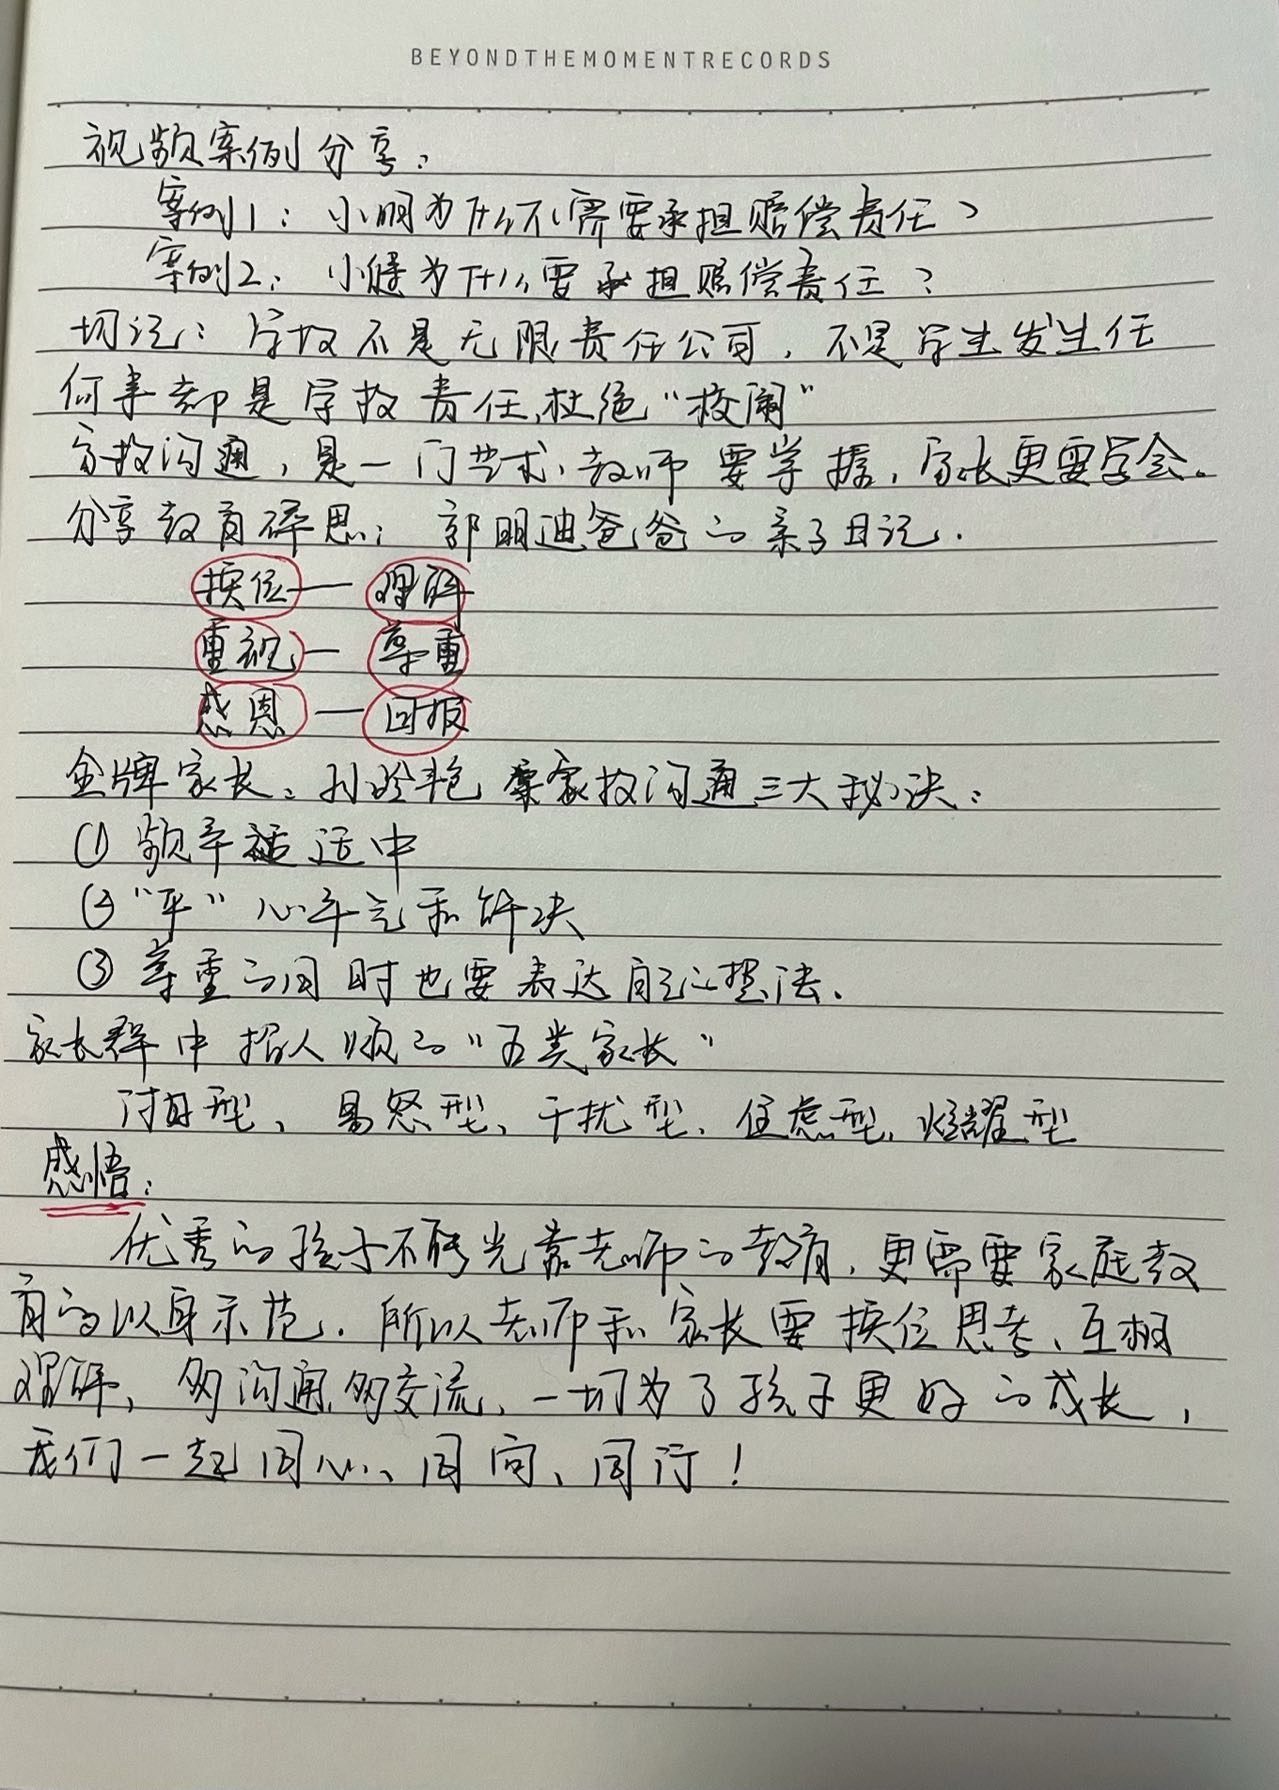 BEYONDTHEMOMENTRECORDS
视频案例分享：
案例1：小明为什么不需要承担赔偿责任？
案例2：小健为什么要承担赔偿责任？
切记：学校不是无限责任公司，不是学生发生任
何事都是学校责任，杜绝“校闹”
家校沟通，是一门艺术，教师要掌握，家长更要学会。
分享教育碎思：郭明迪爸爸的亲子日记．
换位—理解
重视—尊重
感恩—回报
金牌家长：孙玲艳 家校沟通三大秘决：
① 频率适中
② “平”心平气和解决
③ 尊重的同时也要表达自己想法．
家长群中招人烦的“五类家长”
讨好型、易怒型、干扰型、焦虑型、炫耀型
感悟：
优秀的孩子不能光靠老师的教育，更需要家庭教
育的以身示范．所以老师和家长要换位思考、互相
理解，多沟通，多交流，一切为了孩子更好的成长，
我们一起同心、同向、同行！